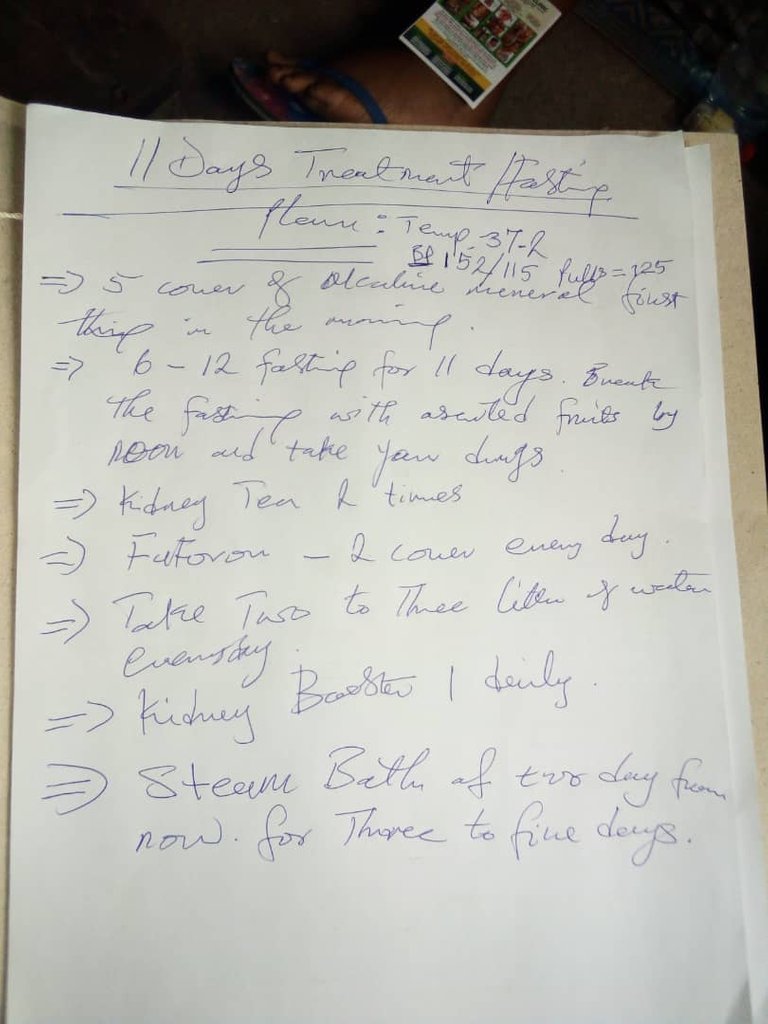 11 Days Treatment / Fasting
Plan : Temp - 37.2
BP 152/115 Pulls = 125
=> 5 cover of Alcaline meneral first
thing in the morning.
=> 6 - 12 fasting for 11 days. Break
the fasting with asorted fruits by
noon and take your drugs.
=> Kidney Tea 2 times
=> Futoron - 2 cover every day.
=> Take Two to Three liter of water
everyday.
=> Kidney Booster 1 daily.
=> Steam Bath of two day from
now. for Three to five days.